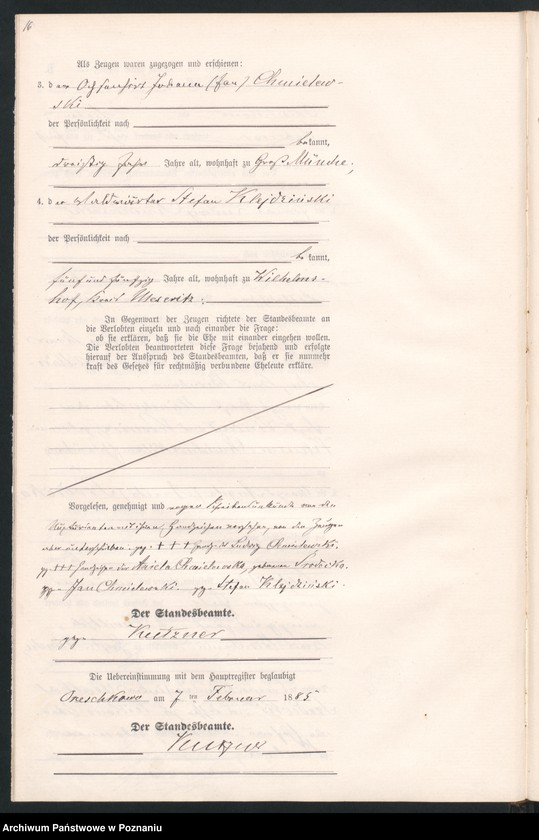 16
Als Zeugen waren zugezogen und erschienen:
3. der Johann (Jan) Chmielew-
ski
der Persönlichkeit nach
bekannt,
dreißig Jahr Jahre alt, wohnhaft zu Groß Münche;
4. der Waldwärter Stefan Klejdziński
der Persönlichkeit nach
bekannt,
fünf und fünfzig Jahre alt, wohnhaft zu Wilhelms-
hof, Meseritz.
In Gegenwart der Zeugen richtete der Standesbeamte an
die Verlobten einzeln und nach einander die Frage:
ob sie erklären, daß sie die Ehe mit einander eingehen wollen.
Die Verlobten beantworteten diese Frage bejahend und erfolgte
hierauf der Ausspruch des Standesbeamten, daß er sie nunmehr
kraft des Gesetzes für rechtmäßig verbundene Eheleute erkläre.
Vorgelesen, genehmigt und wegen Schreibensunkunde von den
mit ihren Handzeichen versehen, von den Zeugen
unterschrieben. gez. + + + Ludwig Chmielewski.
gez. +++ Handzeichen der Aniela Chmielewska, geborene
gez. Jan Chmielewski. gez. Stefan Klejdziński.
Der Standesbeamte.
gez. Kutzner
Die Uebereinstimmung mit dem Hauptregister beglaubigt
am 7 ten Februar 1885
Der Standesbeamte.
Kutzner
Archiwum Państwowe w Poznaniu